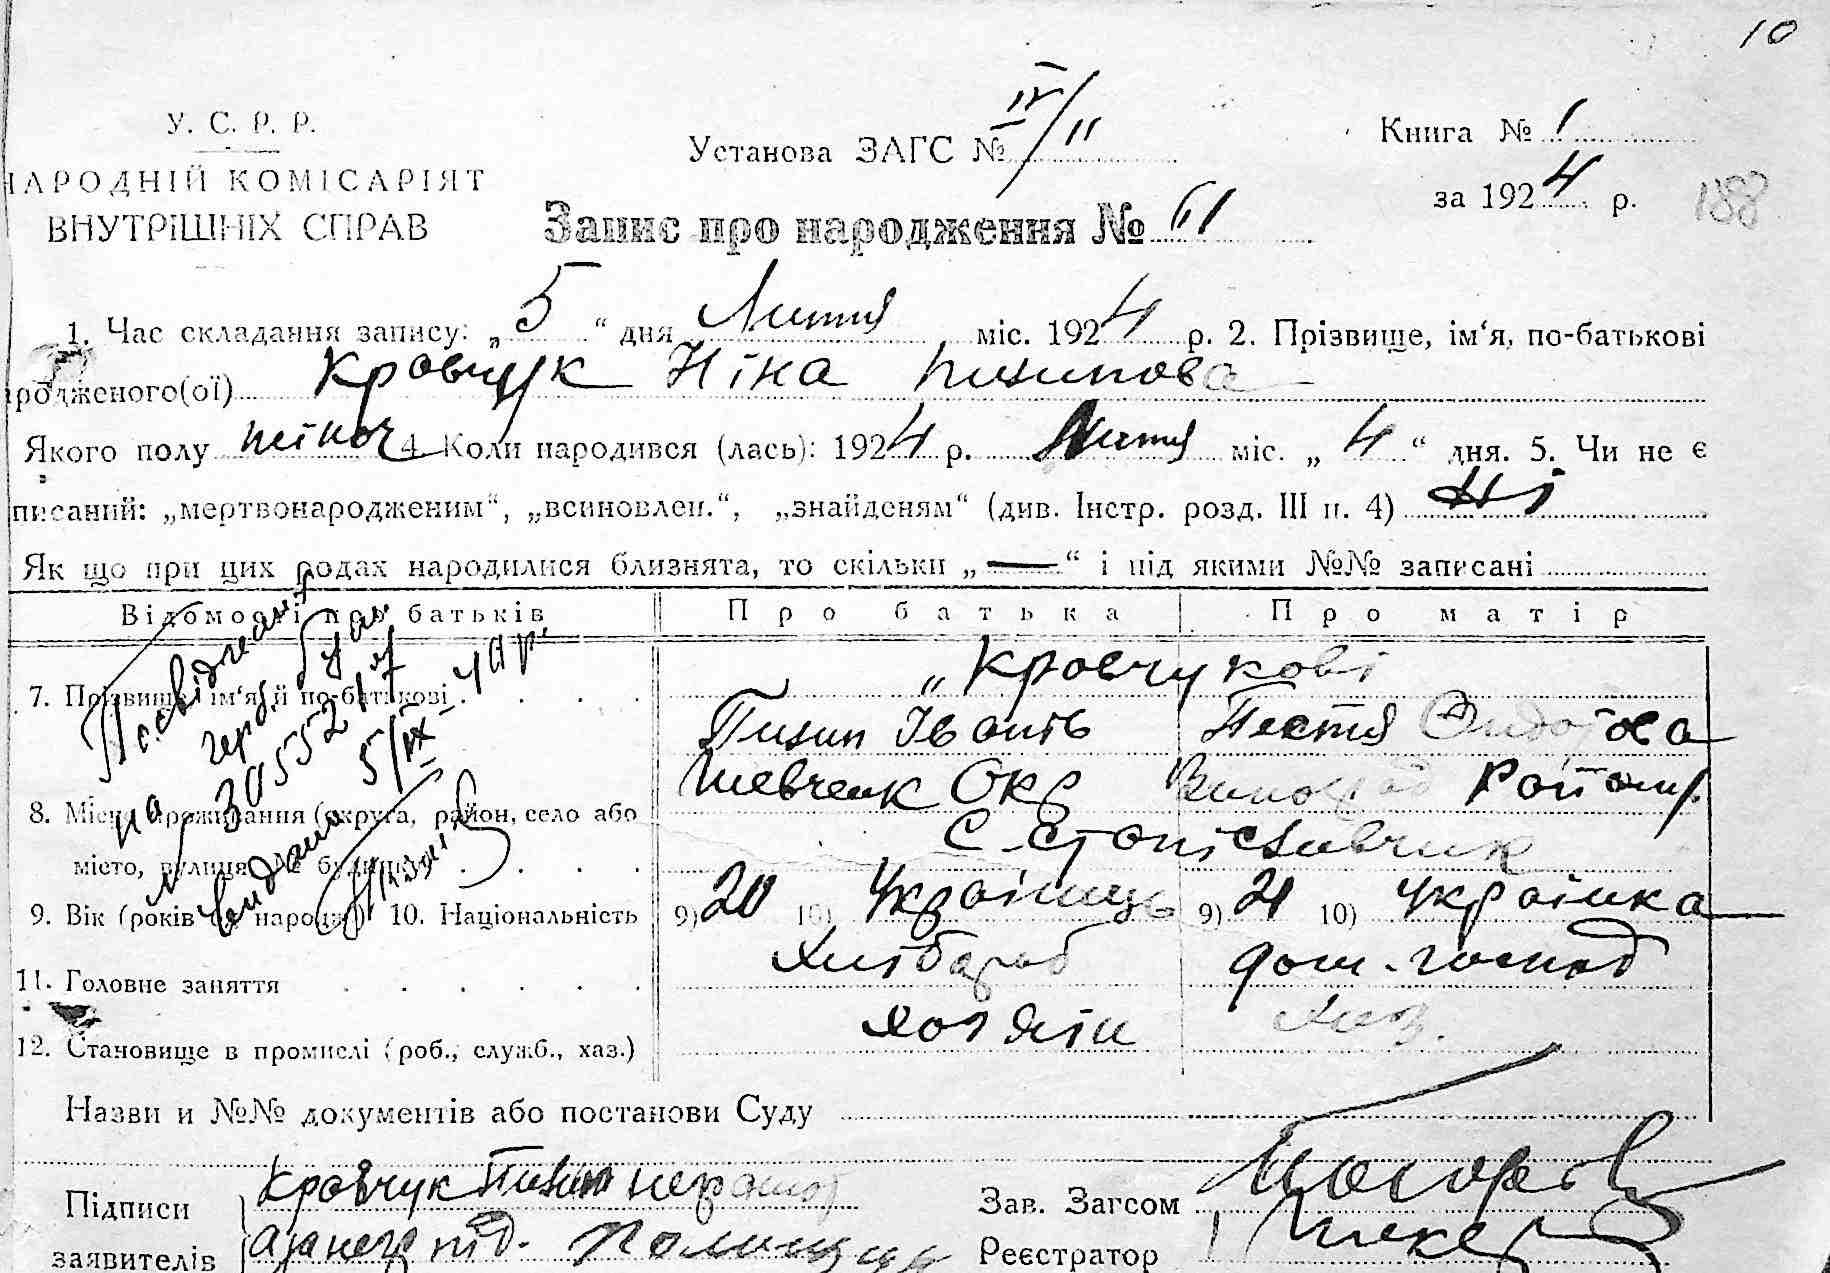 10
У. С. Р. Р.
НАРОДНІЙ КОМІСАРІЯТ
ВНУТРІШНІХ СПРАВ
Установа ЗАГС № IV/II
Книга № 1
за 1924 р.
188
Запис про народження № 61
1. Час складання запису: „5“ дня Лютня міс. 1924 р. 2. Прізвище, ім‘я, по-батькові
родженого(ої) Кровчук Ніна Пизипова
Якого полу жіноч 4. Коли народився (лась): 1924 р. Лютня міс. „4“ дня. 5. Чи не є
писаний: „мертвонародженим“, „всиновлен.“, „знайденям“ (див. Інстр. розд. III п. 4) Ні
Як що при цих родах народилися близнята, то скільки „—“ і під якими №№ записані
Відомості про батьків Про батька Про матір
7. Прізвище, ім‘я й по-батькові „Кровчукові
Пизип Івонів Настя
8. Місце проживання (округа, район, село або Шевченк Окр
місто, вулиця будинку) С. Стоніславчик
9. Вік (років народж.) 10. Національність 9) 20 10) Українець 9) 21 10) Українка
11. Головне заняття Хлібороб дом. господ
12. Становище в промислі (роб., служб., хаз.) хозяїн хаз.
Посвідчення
на
№ 305521
видано 5/IX-
Назви и №№ документів або постанови Суду
Підписи Кровчук Пизип неграмот
заявителів
Зав. Загсом
Реєстратор